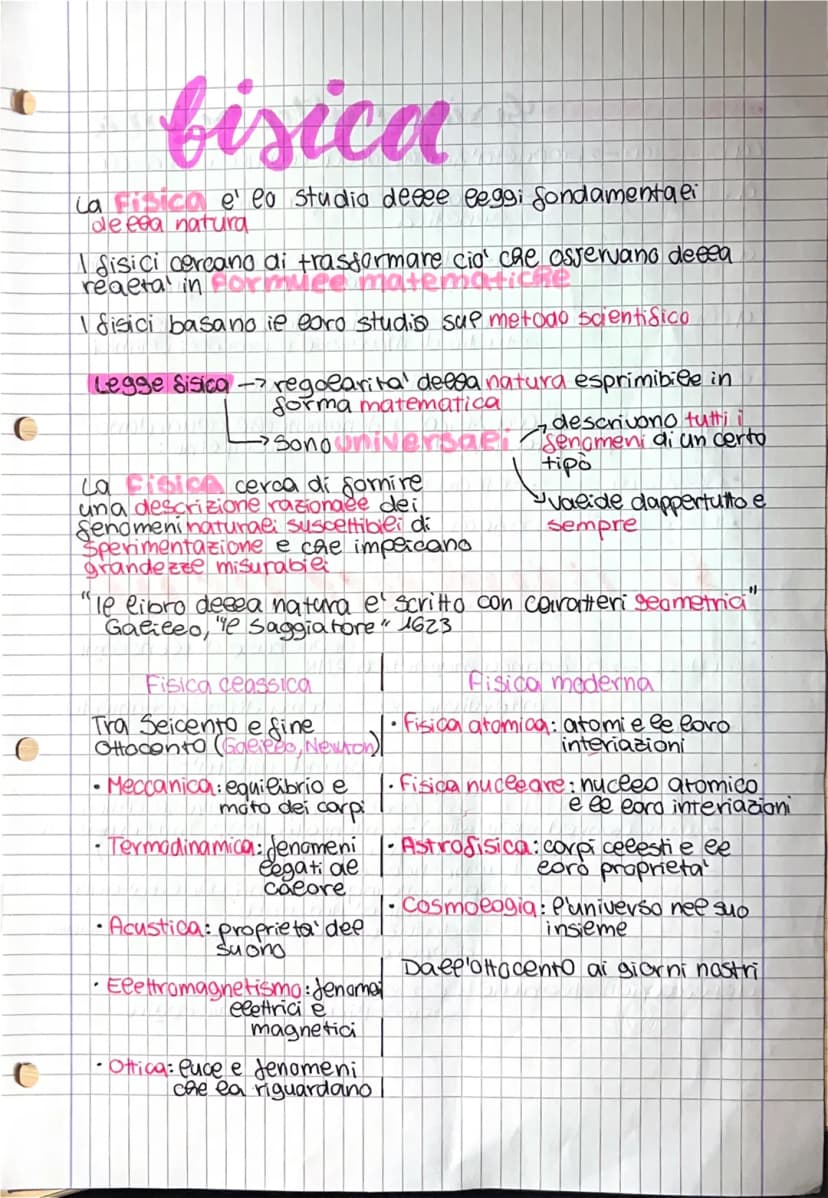 fisica
La Fisica e' lo studio delle leggi fondamentali
della natura
I fisici cercano di trasformare cio' che osservano della
realta' in formule matematiche
I fisici basano il loro studio sul metodo scientifico
Legge fisica → regolarita' della natura esprimibile in
forma matematica
→ sono universali
→ descrivono tutti i
fenomeni di un certo
tipo
→ valide dappertutto e
sempre
La Fisica cerca di fornire
una descrizione razionale dei
fenomeni naturali suscettibili di
sperimentazione e che implicano
grandezze misurabili
"Il libro della natura e' scritto con caratteri geometrici"
Galileo, "Il Saggiatore" 1623
Fisica classica
Tra Seicento e fine
Ottocento (Galileo, Newton)
• Meccanica: equilibrio e
moto dei corpi
• Termodinamica: fenomeni
legati al
calore
• Acustica: proprieta' del
suono
• Elettromagnetismo: fenomei
elettrici e
magnetici
• Ottica: luce e fenomeni
che la riguardano
Fisica moderna
• Fisica atomica: atomi e le loro
interiazioni
• Fisica nucleare: nucleo atomico
e le loro interiazioni
• Astrofisica: corpi celesti e le
loro proprieta'
• Cosmologia: l'universo nel suo
insieme
Dall'Ottocento ai giorni nostri